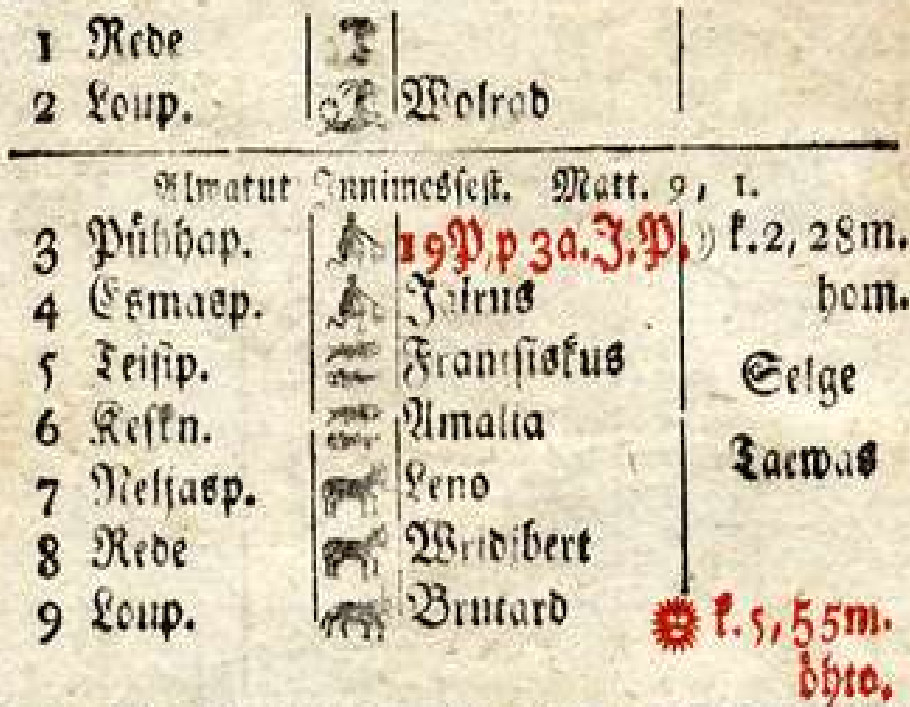 1 Rede
2 Loup. Wolrad
Almatut Innimesfest. Matt. 9, 1.
3 Pühhap. 19 P, p 3a. J. P. k. 2, 28m.
4 Esmasp. Jairus hom.
5 Teisip. Frantsiskus Selge
6 Keskn. Amalia
7 Neljasp. Leno Taewas
8 Rede
9 Loup. Brutard k. 5, 55m.
õhto.